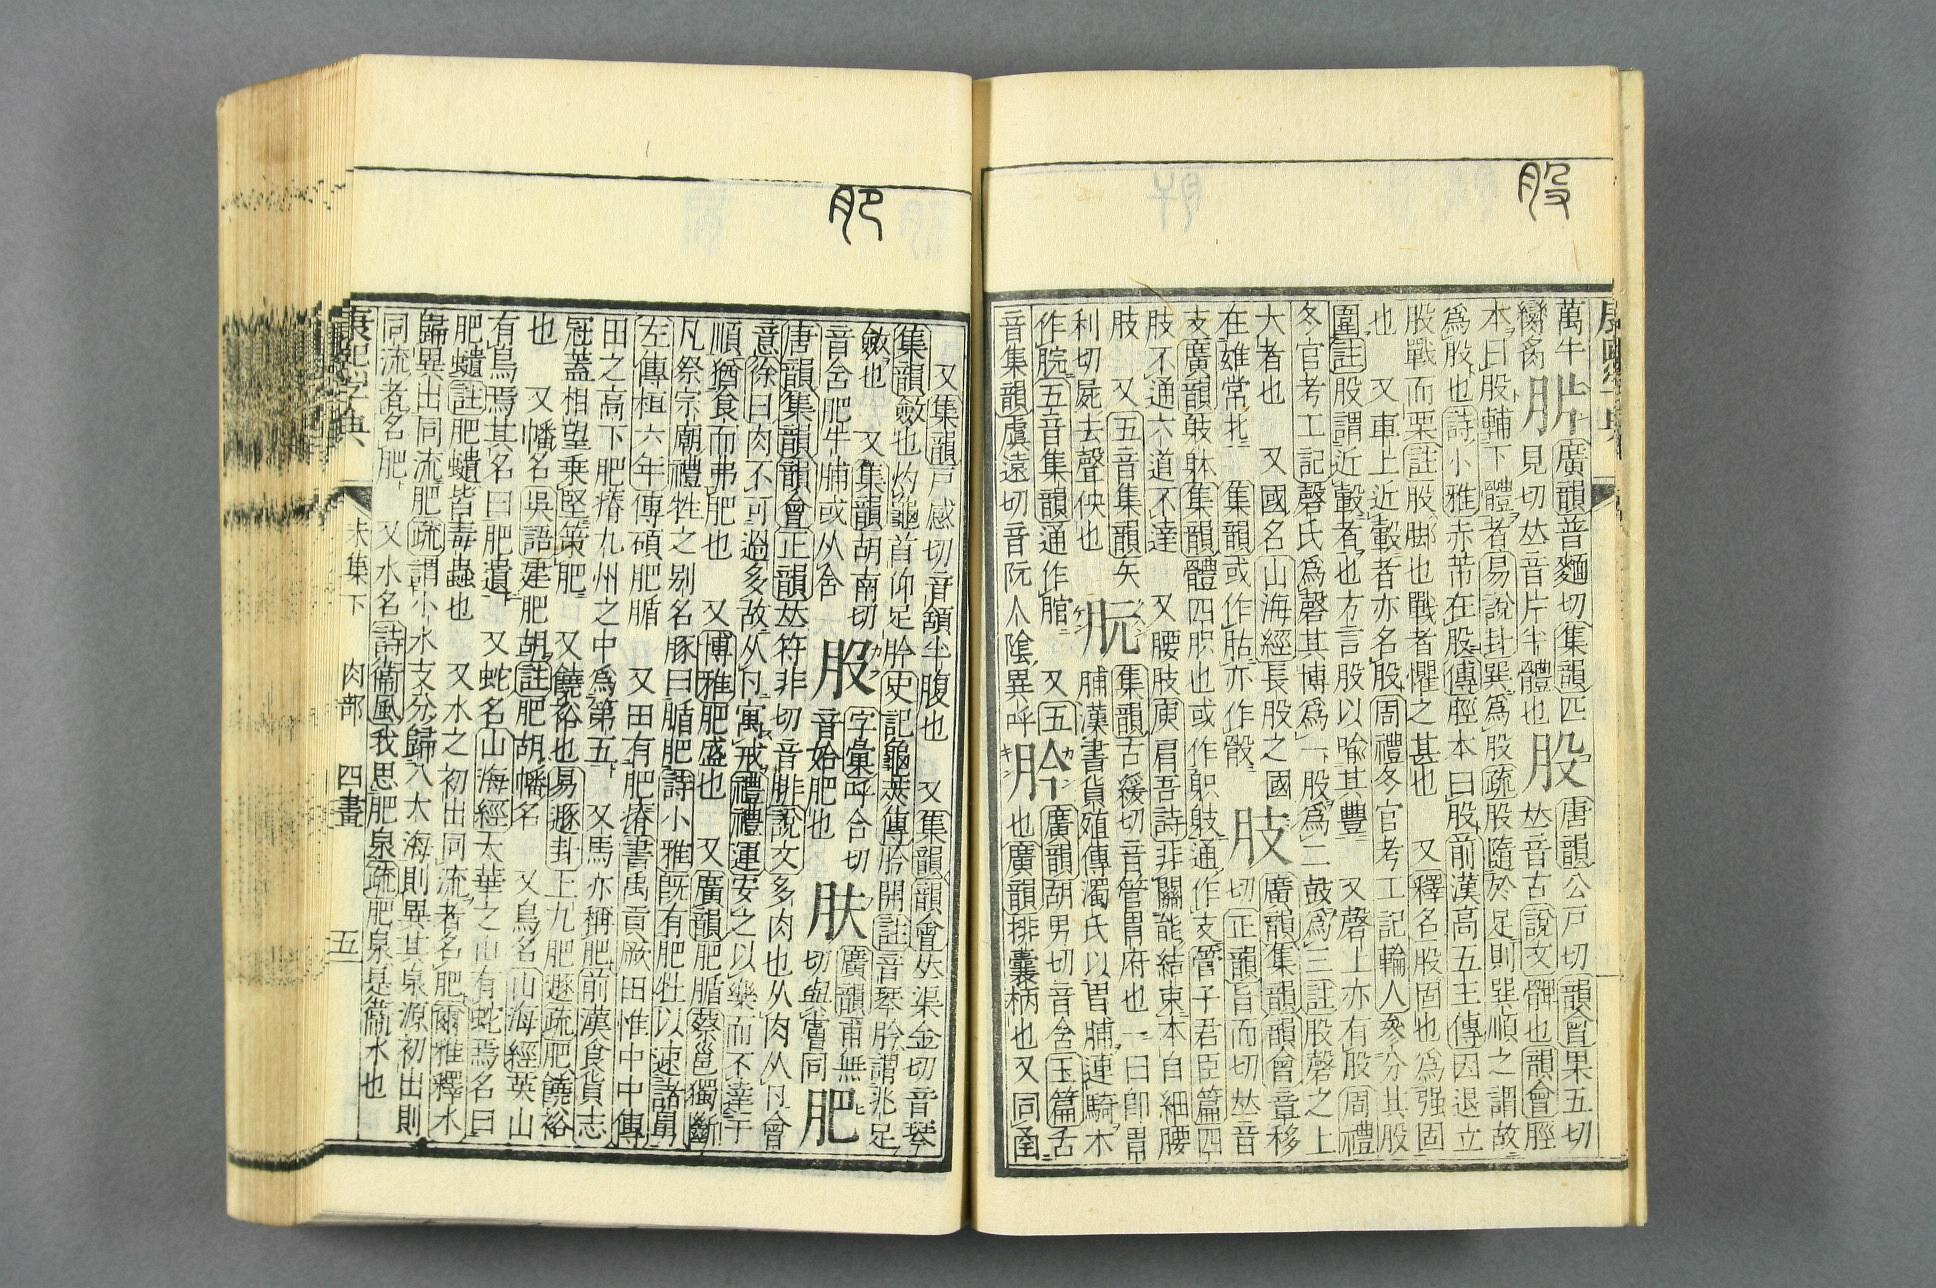 股
康熙字典
萬牛
臠炙
廣韻音麵切集韻匹
見切𠀤音片半體也
股
唐韻公戸切韻會果五切
𠀤音古說文髀也韻會脛
本曰股輔下體者易說卦巽爲股疏股隨於足則巽順之謂故
爲股也詩小雅赤芾在股傳脛本曰股前漢高五王傳因退立
股戰而栗註股脚也戰者懼之甚也 又釋名股固也爲强固
也 又車上近轂者亦名股周禮冬官考工記輪人參分其股
圍註股謂近轂者也方言股以喻其豐 又磬上亦有股周禮
冬官考工記磬氏爲磬其博爲一股爲二鼓爲三註股磬之上
大者也 又國名山海經長股之國
在雄常北 集韻或作胑亦作骰
肢
廣韻集韻韻會章移
切正韻旨而切𠀤音
支廣韻躲躰集韻體四胑也或作躷𨈛通作支管子君臣篇四
肢不通六道不達 又腰肢庾肩吾詩非關能結束本自細腰
肢 又五音集韻矢
利切屍去聲佒也
朊
集韻古緩切音管胃府也一曰卽胃
脯漢書貨殖傳濁氏以胃脯連騎木
作脘五音集韻通作䐽 又五
音集韻虞遠切音阮人陰異呼
肣
廣韻胡男切音含玉篇舌
也廣韻排囊柄也又同圅
肥
又集韻戸感切音頷牛腹也 又集韻韻會𠀤渠金切音琴
集韻斂也灼龜首仰足肣史記龜筴傳肣開註音琴肣謂兆足
斂也 又集韻胡南切
音含肥牛脯或从含
股
字彙呼合切
音始肥也
肤
廣韻甫無
切與膚同
肥
唐韻集韻韻會正韻𠀤符非切音腓說文多肉也从肉从卪會
意徐曰肉不可過多故从卪寓戒禮禮運安之以樂而不達于
順猶食而弗肥也 又博雅肥盛也 又廣韻肥腯蔡邕獨斷
凡祭宗廟禮牲之别名豚曰腯肥詩小雅旣有肥牡以速諸舅
左傳桓六年傳碩肥腯 又田有肥瘠書禹貢厥田惟中中傳
田之高下肥瘠九州之中爲第五 又馬亦稱肥前漢食貨志
冠蓋相望乘堅策肥 又饒裕也易遯卦上九肥遯疏肥饒裕
也 又幡名吳語建肥胡註肥胡幡名 又鳥名山海經英山
有鳥焉其名曰肥遺 又蛇名山海經太華之山有蛇焉名曰
肥䗽註肥䗽皆毒蟲也 又水之初出同流者名肥爾雅釋水
歸異出同流肥疏謂小水支分歸入大海則異其泉源初出則
同流者名肥 又水名詩衞風我思肥泉疏肥泉是衞水也
康熙字典 未集下 肉部 四畫 五